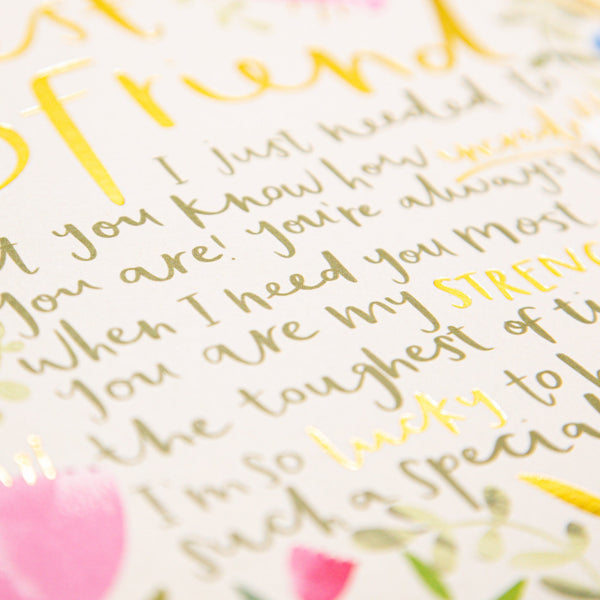 st
Friend
I just needed to
you know how
you are! you're always
when I need you most
you are my STRENG
the toughest of ti
I'm so lucky to h
such a special